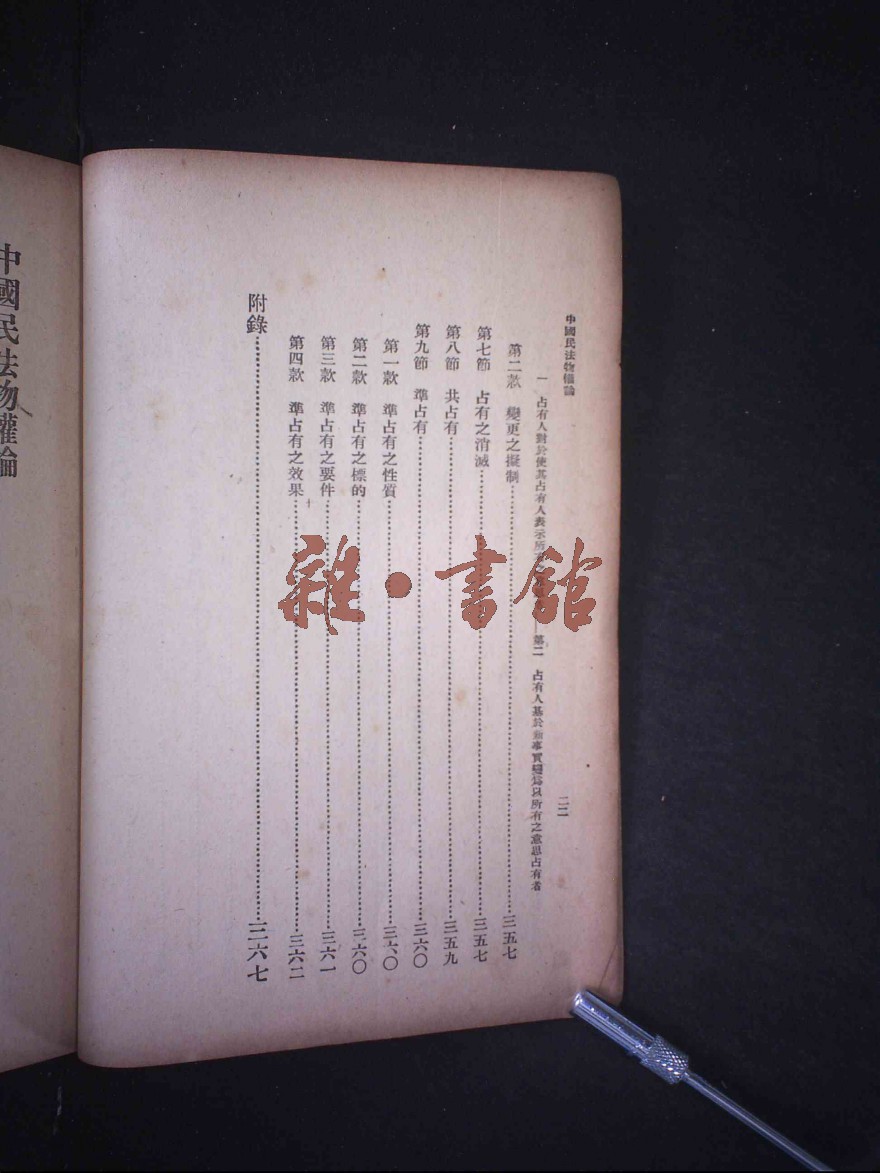 中國民法物權論
二二
一　占有人對於使其占有人表示所有　第二　占有人基於新事實變爲以所有之意思占有者
第二款　變更之擬制……三五七
第七節　占有之消滅……三五七
第八節　共占有……三五九
第九節　準占有……三六〇
第一款　準占有之性質……三六〇
第二款　準占有之標的……三六〇
第三款　準占有之要件……三六一
第四款　準占有之效果……三六二
附錄……三六七
雜·書館
中國民法物權論